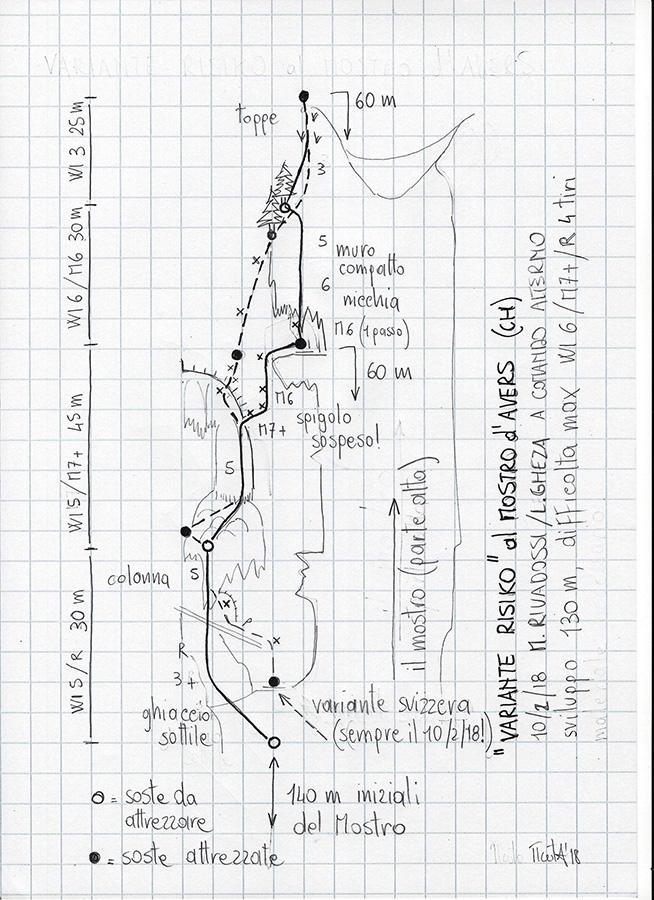 60 m
toppe
WI 3 25 m
3
5
muro
compatto
6
nicchia
WI 6 / M6 30 m
M6 (1 passo)
60 m
M6
M7+
spigolo
sospeso!
5
WI 5 / M7+ 45 m
colonna
5
il mostro (parte alta)
R
3+
WI 5 / R 30 m
ghiaccio
sottile
variante svizzera
(sempre il 10/2/18!)
140 m iniziali
del Mostro
O = soste da
attrezzare
● = soste attrezzate
"VARIANTE RISIKO" al MOSTRO d'AVERS (CH)
10/2/18 M. RIVADOSSI / L. GHEZA A COMANDO ALTERNO
sviluppo 130 m, difficoltà max WI 6 / M7+/R 4 tiri